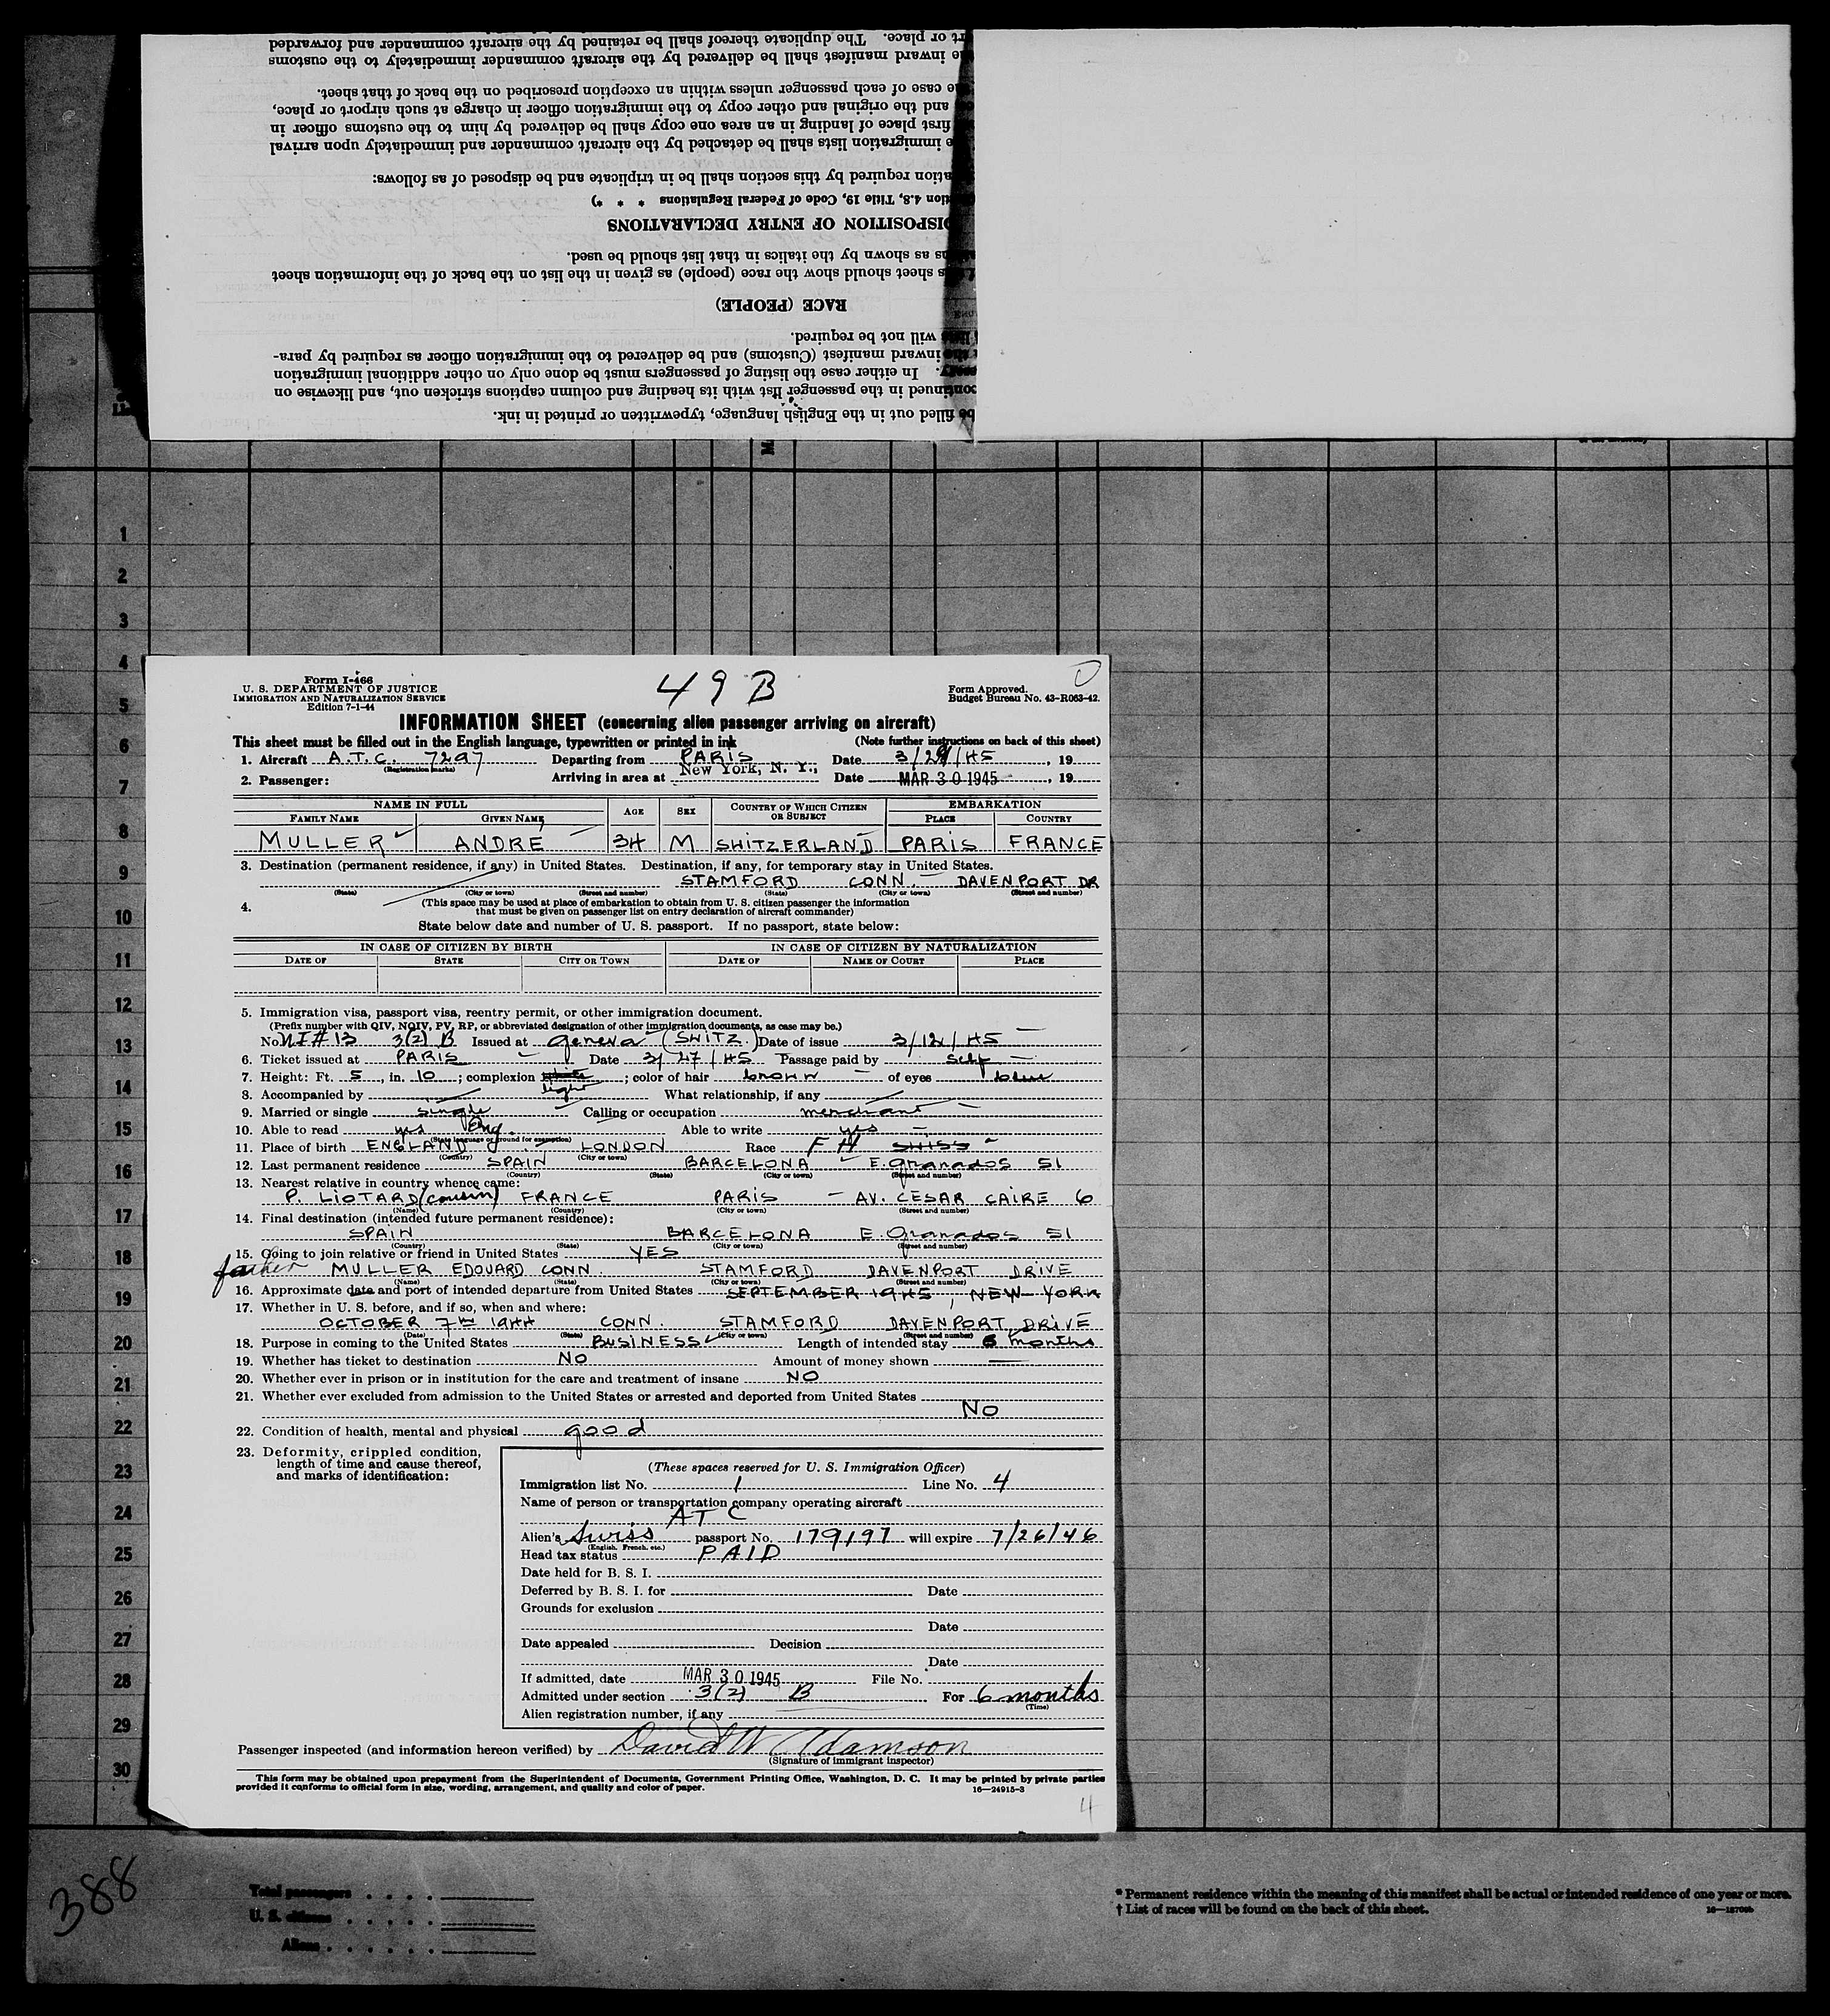 rt or place. The duplicate thereof shall be retained by the aircraft commander and forwarded
e inward manifest shall be delivered by the aircraft commander immediately to the customs
e case of each passenger unless within an exception prescribed on the back of that sheet.
and the original and other copy to the immigration officer in charge at such airport or place,
first place of landing in an area one copy shall be delivered by him to the customs officer in
e immigration lists shall be detached by the aircraft commander and immediately upon arrival
ation required by this section shall be in triplicate and be disposed of as follows:
tion 4.8, Title 19, Code of Federal Regulations * * *)
DISPOSITION OF ENTRY DECLARATIONS
as shown by the italics in that list should be used.
s sheet should show the race (people) as given in the list on the back of the information sheet
RACE (PEOPLE)
will not be required.
inward manifest (Customs) and be delivered to the immigration officer as required by para-
In either case the listing of passengers must be done only on other additional immigration
continued in the passenger list with its heading and column captions stricken out, and likewise on
be filled out in the English language, typewritten or printed in ink.
1
2
3
4
5
6
7
8
9
10
11
12
13
14
15
16
17
18
19
20
21
22
23
24
25
26
27
28
29
30
Form I-466
U. S. DEPARTMENT OF JUSTICE
IMMIGRATION AND NATURALIZATION SERVICE
Edition 7-1-44
49 B
Form Approved.
Budget Bureau No. 43-R063-42.
INFORMATION SHEET (concerning alien passenger arriving on aircraft)
This sheet must be filled out in the English language, typewritten or printed in ink (Note further instructions on back of this sheet)
1. Aircraft A.T.C. 7297 Departing from PARIS Date 3/29/45, 19
(Registration marks)
2. Passenger: Arriving in area at New York, N. Y., Date MAR 30 1945, 19
NAME IN FULL AGE SEX COUNTRY OF WHICH CITIZEN OR SUBJECT EMBARKATION
FAMILY NAME GIVEN NAME PLACE COUNTRY
MULLER ANDRÉ 34 M SWITZERLAND PARIS FRANCE
3. Destination (permanent residence, if any) in United States. Destination, if any, for temporary stay in United States.
STAMFORD CONN. DAVENPORT DR
(State) (City or town) (Street and number) (State) (City or town) (Street and number)
4. (This space may be used at place of embarkation to obtain from U. S. citizen passenger the information
that must be given on passenger list on entry declaration of aircraft commander)
State below date and number of U. S. passport. If no passport, state below:
IN CASE OF CITIZEN BY BIRTH IN CASE OF CITIZEN BY NATURALIZATION
DATE OF STATE CITY OR TOWN DATE OF NAME OF COURT PLACE
5. Immigration visa, passport visa, reentry permit, or other immigration document.
(Prefix number with QIV, NQIV, PV, RP, or abbreviated designation of other immigration documents, as case may be.)
No. NI#13 3(2) B Issued at Geneva (SWITZ.) Date of issue 3/12/45
6. Ticket issued at PARIS Date 3/27/45 Passage paid by self
7. Height: Ft. 5, in. 10; complexion white light; color of hair brown of eyes blue
8. Accompanied by What relationship, if any
9. Married or single single Calling or occupation merchant
10. Able to read yes Eng. Able to write yes
(State language or ground for exemption)
11. Place of birth ENGLAND LONDON Race F H SWISS
(Country) (City or town)
12. Last permanent residence SPAIN BARCELONA E. Granados 51
(Country) (State) (City or town) (Street and number)
13. Nearest relative in country whence came:
P. LIOTARD (cousin) FRANCE PARIS - AV. CESAR CAIRE 6
(Name) (Country) (City or town) (Street and number)
14. Final destination (intended future permanent residence):
SPAIN BARCELONA E. Granados 51
(Country) (State) (City or town) (Street and number)
15. Going to join relative or friend in United States YES
father MULLER EDOUARD CONN. STAMFORD DAVENPORT DRIVE
(Name) (State) (City or town) (Street and number)
16. Approximate date and port of intended departure from United States SEPTEMBER 1945, NEW YORK
17. Whether in U. S. before, and if so, when and where:
OCTOBER 7th 1944 CONN. STAMFORD DAVENPORT DRIVE
(Date) (State) (City or town) (Street and number)
18. Purpose in coming to the United States BUSINESS Length of intended stay 6 months
19. Whether has ticket to destination NO Amount of money shown
20. Whether ever in prison or in institution for the care and treatment of insane NO
21. Whether ever excluded from admission to the United States or arrested and deported from United States
NO
22. Condition of health, mental and physical good
23. Deformity, crippled condition,
length of time and cause thereof,
and marks of identification:
(These spaces reserved for U. S. Immigration Officer)
Immigration list No. 1 Line No. 4
Name of person or transportation company operating aircraft
ATC
Alien's Swiss passport No. 179197 will expire 7/26/46
(English, French, etc.)
Head tax status PAID
Date held for B. S. I.
Deferred by B. S. I. for Date
Grounds for exclusion
Date
Date appealed Decision
Date
If admitted, date MAR 30 1945 File No.
Admitted under section 3(2) B For 6 months
(Time)
Alien registration number, if any
Passenger inspected (and information hereon verified) by David W Adamson
(Signature of immigrant inspector)
This form may be obtained upon prepayment from the Superintendent of Documents, Government Printing Office, Washington, D. C. It may be printed by private parties
provided it conforms to official form in size, wording, arrangement, and quality and color of paper. 16—24915-3
4
388
Total passengers
U. S. citizens
Aliens
* Permanent residence within the meaning of this manifest shall be actual or intended residence of one year or more.
† List of races will be found on the back of this sheet.